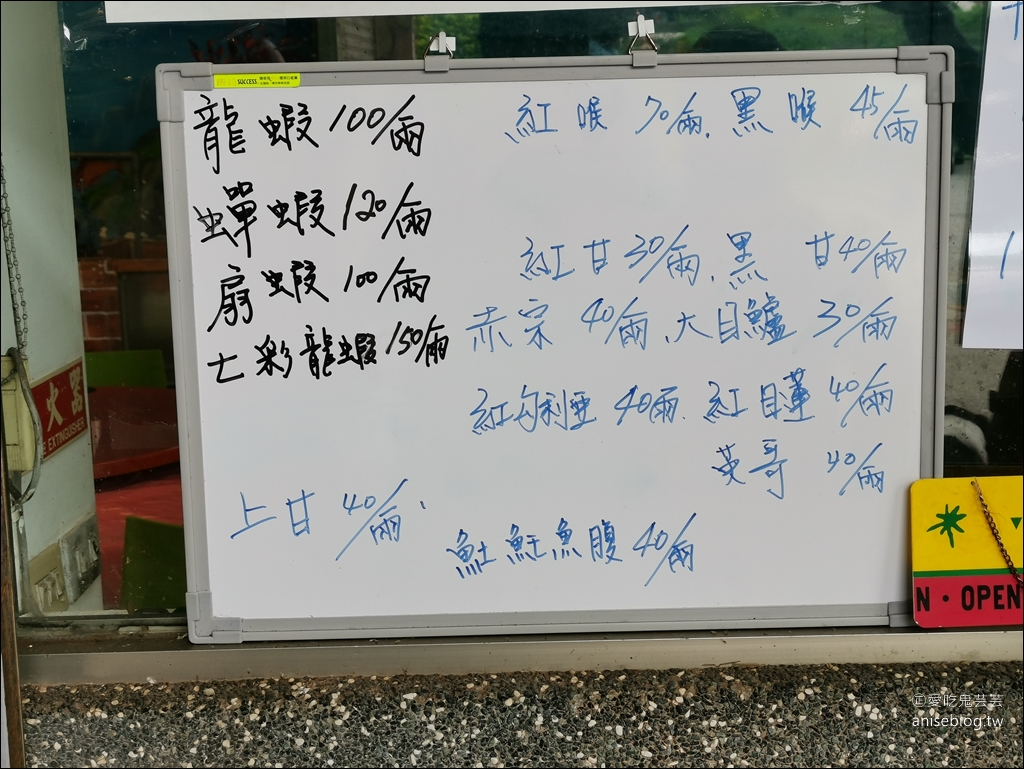 SUCCESS
龍蝦 100/兩
蟬蝦 120/兩
扇蝦 100/兩
七彩龍蝦 150/兩
紅喉 70/兩. 黑喉 45/兩
紅甘 30/兩. 黑 甘 40/兩
赤宗 40/兩、大目鱸 30/兩
紅勾利亞 40兩. 紅目蓮 40/兩
英哥 40/兩
上甘 40/兩.
魚土魠魚腹 40/兩
火器
FIRE EXTINGUISHER
N·OPEN
愛吃鬼芸芸
aniseblog.tw